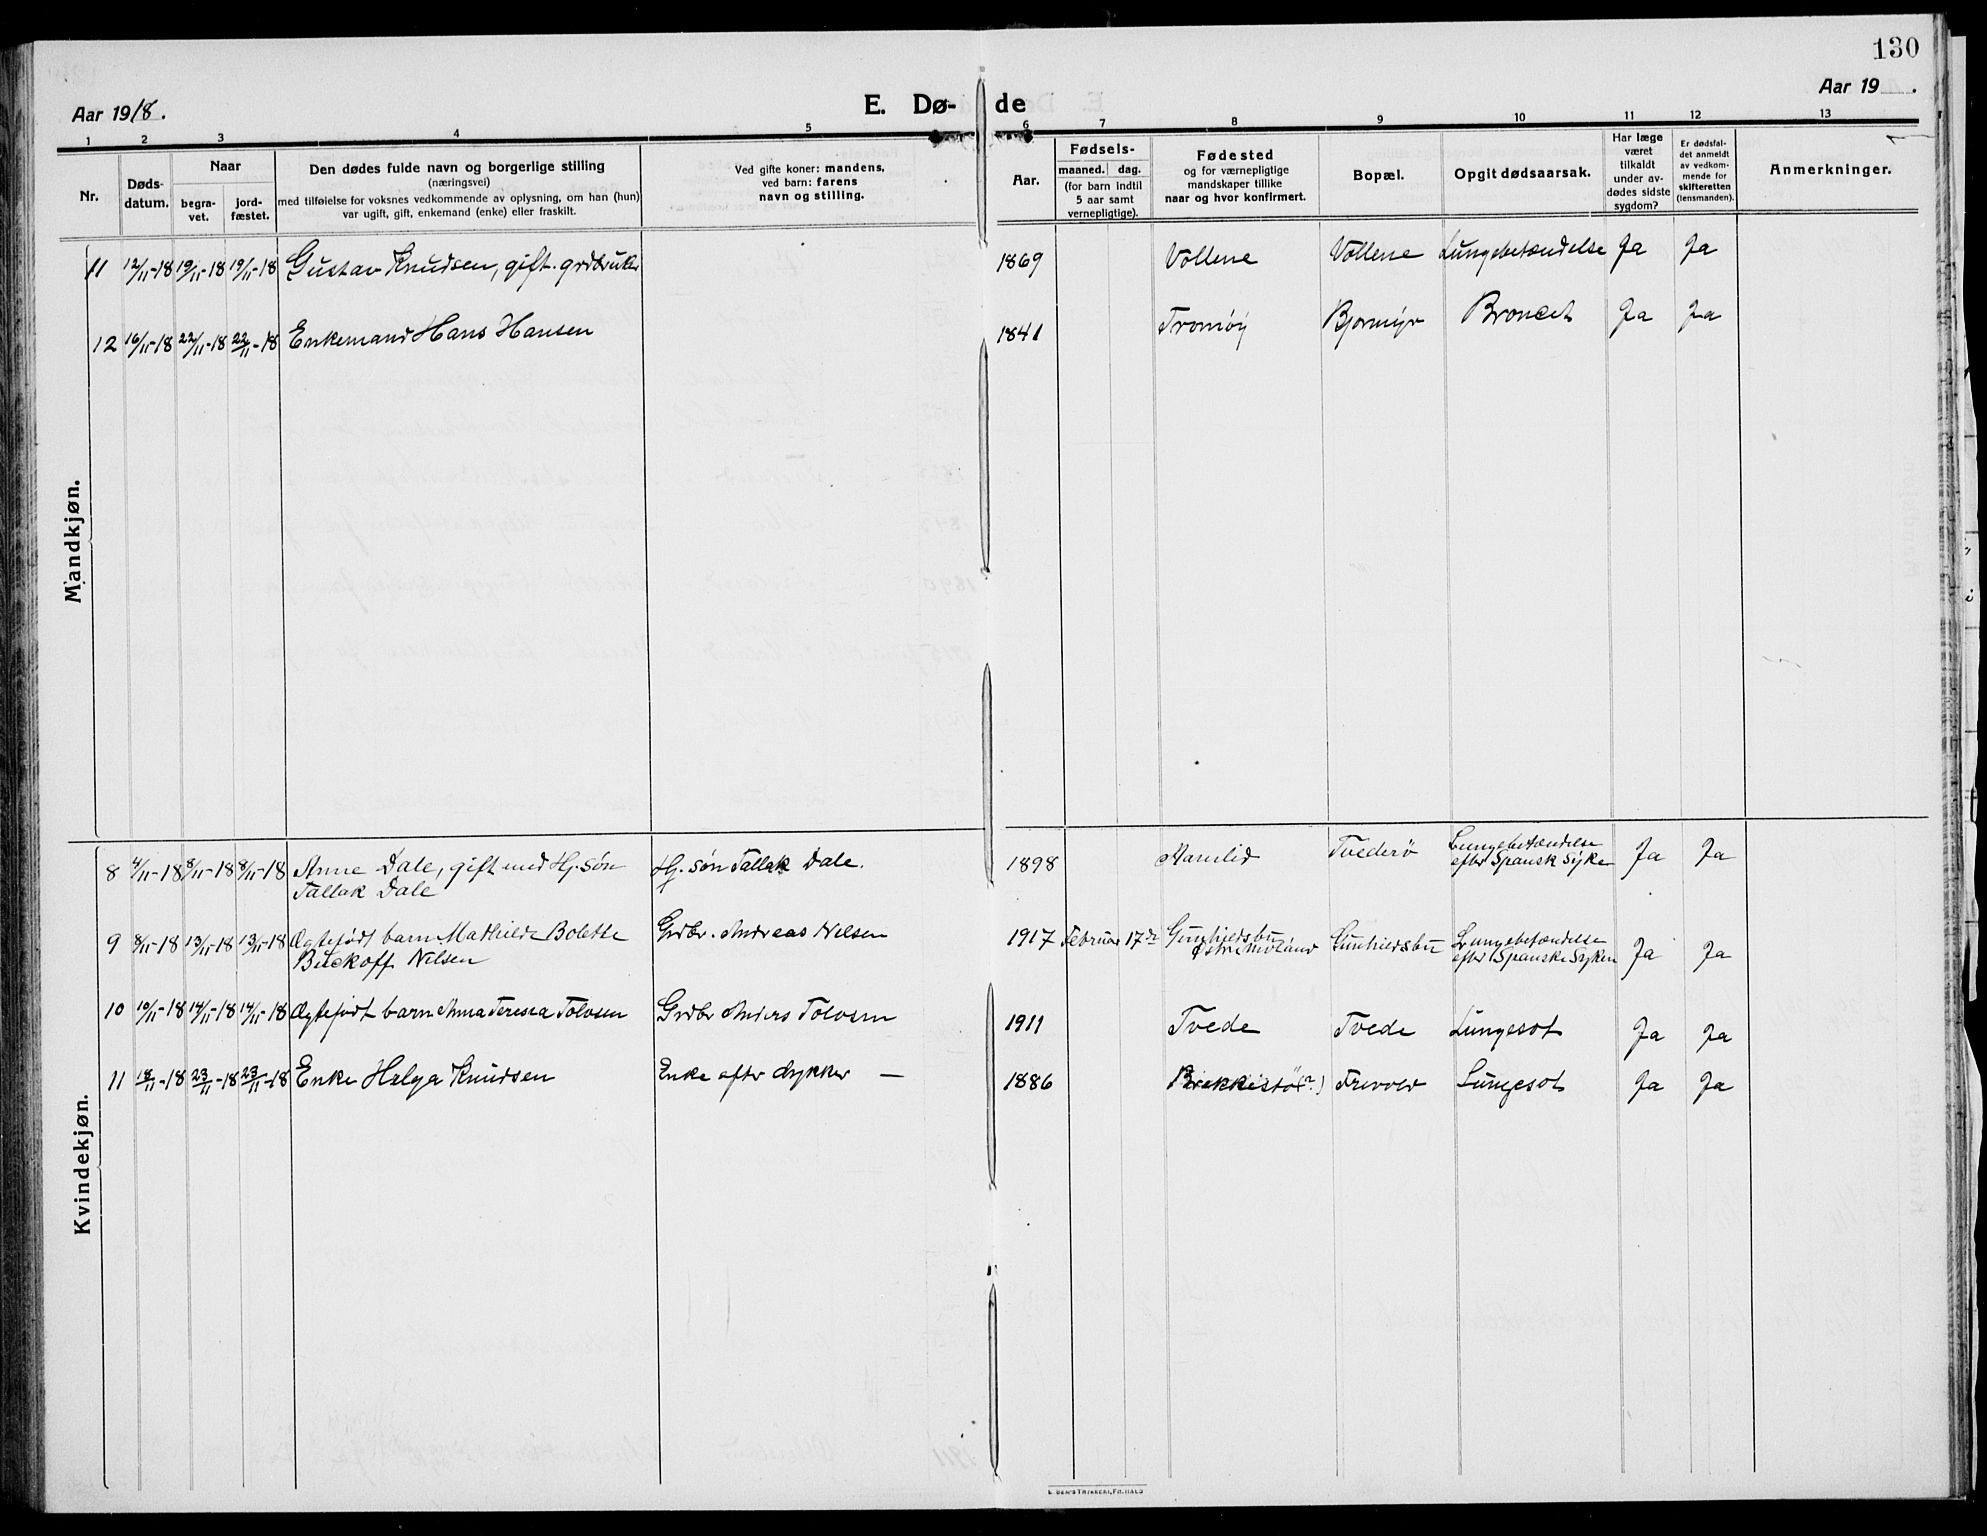 130
Aar 1918.
E. Dø- de
Aar 19 .
1 2 3 4 5 6 7 8 9 10 11 12 13
Nr.
Døds-
datum.
Naar
begra-
vet.
jord-
fæstet.
Den dødes fulde navn og borgerlige stilling
(næringsvei)
med tilføielse for voksnes vedkommende av oplysning, om han (hun)
var ugift, gift, enkemand (enke) eller fraskilt.
Ved gifte koner: mandens,
ved barn: farens
navn og stilling.
Aar.
Fødsels-
maaned. dag.
(for barn indtil
5 aar samt
vernepligtige).
Fødested
og for værnepligtige
mandskaper tillike
naar og hvor konfirmert.
Bopæl.
Opgit dødsaarsak.
Har læge
været
tilkaldt
under av-
dødes sidste
sygdom?
Er dødsfal-
det anmeldt
av vedkom-
mende for
skifteretten
(lensmanden).
Anmerkninger.
Mandkjøn.
11 12/11-18 19/11-18 19/11-18 Gustav Knudsen, gift. grdbruker 1869 Vollene Vollene Lungebetændelse Ja Ja
12 16/11-18 22/11-18 22/11-18 Enkemand Hans Hansen 1841 Tromøy Bjormyr Broncit Ja Ja
Kvindekjøn.
8 4/11-18 8/11-18 8/11-18 Anne Dale, gift med Hj. søn Hj. søn Tallak Dale. 1898 Ramlid Tvederø Lungebetændelse Ja Ja
Tallak Dale efter Spansk Syke
9 8/11-18 13/11-18 13/11-18 Ægtefødt barn Mathilde Bolette Grdbr. Andreas Nilsen 1917 Februar 17de Gunhildsbu Gunhildsbu Lungebetændelse Ja Ja
Bückoff Nilsen Østre Moland efter Spanske Syken
10 10/11-18 14/11-18 14/11-18 Ægtefødt barn Anna Teresia Tolvsen Grdbr Anders Tolvsen 1911 Tvede Tvede Lungesot Ja Ja
11 18/11-18 23/11-18 23/11-18 Enke Helga Knudsen Enke efter dykker — 1886 Brekkestø(?) Trevold Lungesot Ja Ja